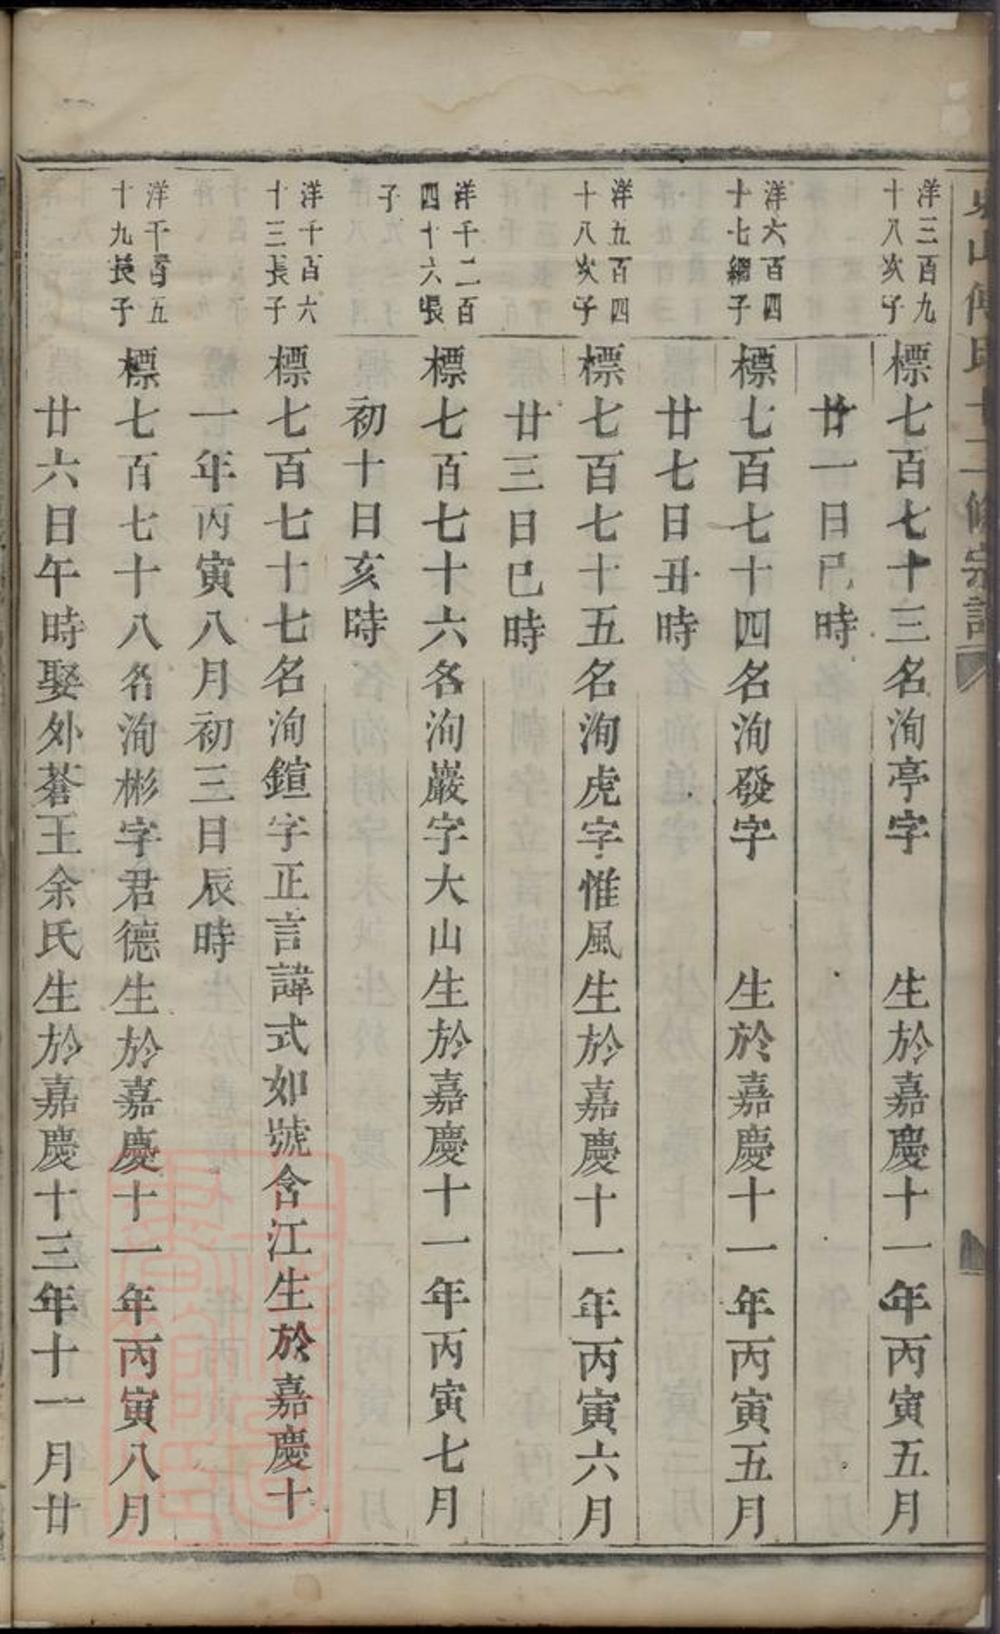 山傅氏十二修宗譜
洋三百九
十八次子
標七百七十三名洵亭字　生於嘉慶十一年丙寅五月
廿一日巳時
洋六百四
十七繼子
標七百七十四名洵發字　生於嘉慶十一年丙寅五月
廿七日丑時
洋五百四
十八次子
標七百七十五名洵虎字惟風生於嘉慶十一年丙寅六月
廿三日巳時
洋千二百
四十六長
子
標七百七十六名洵巖字大山生於嘉慶十一年丙寅七月
初十日亥時
洋千百六
十三長子
標七百七十七名洵鍹字正言諱式如號含江生於嘉慶十
一年丙寅八月初三日辰時
洋千百五
十九長子
標七百七十八名洵彬字君德生於嘉慶十一年丙寅八月
廿六日午時娶外蒼王余氏生於嘉慶十三年十一月廿